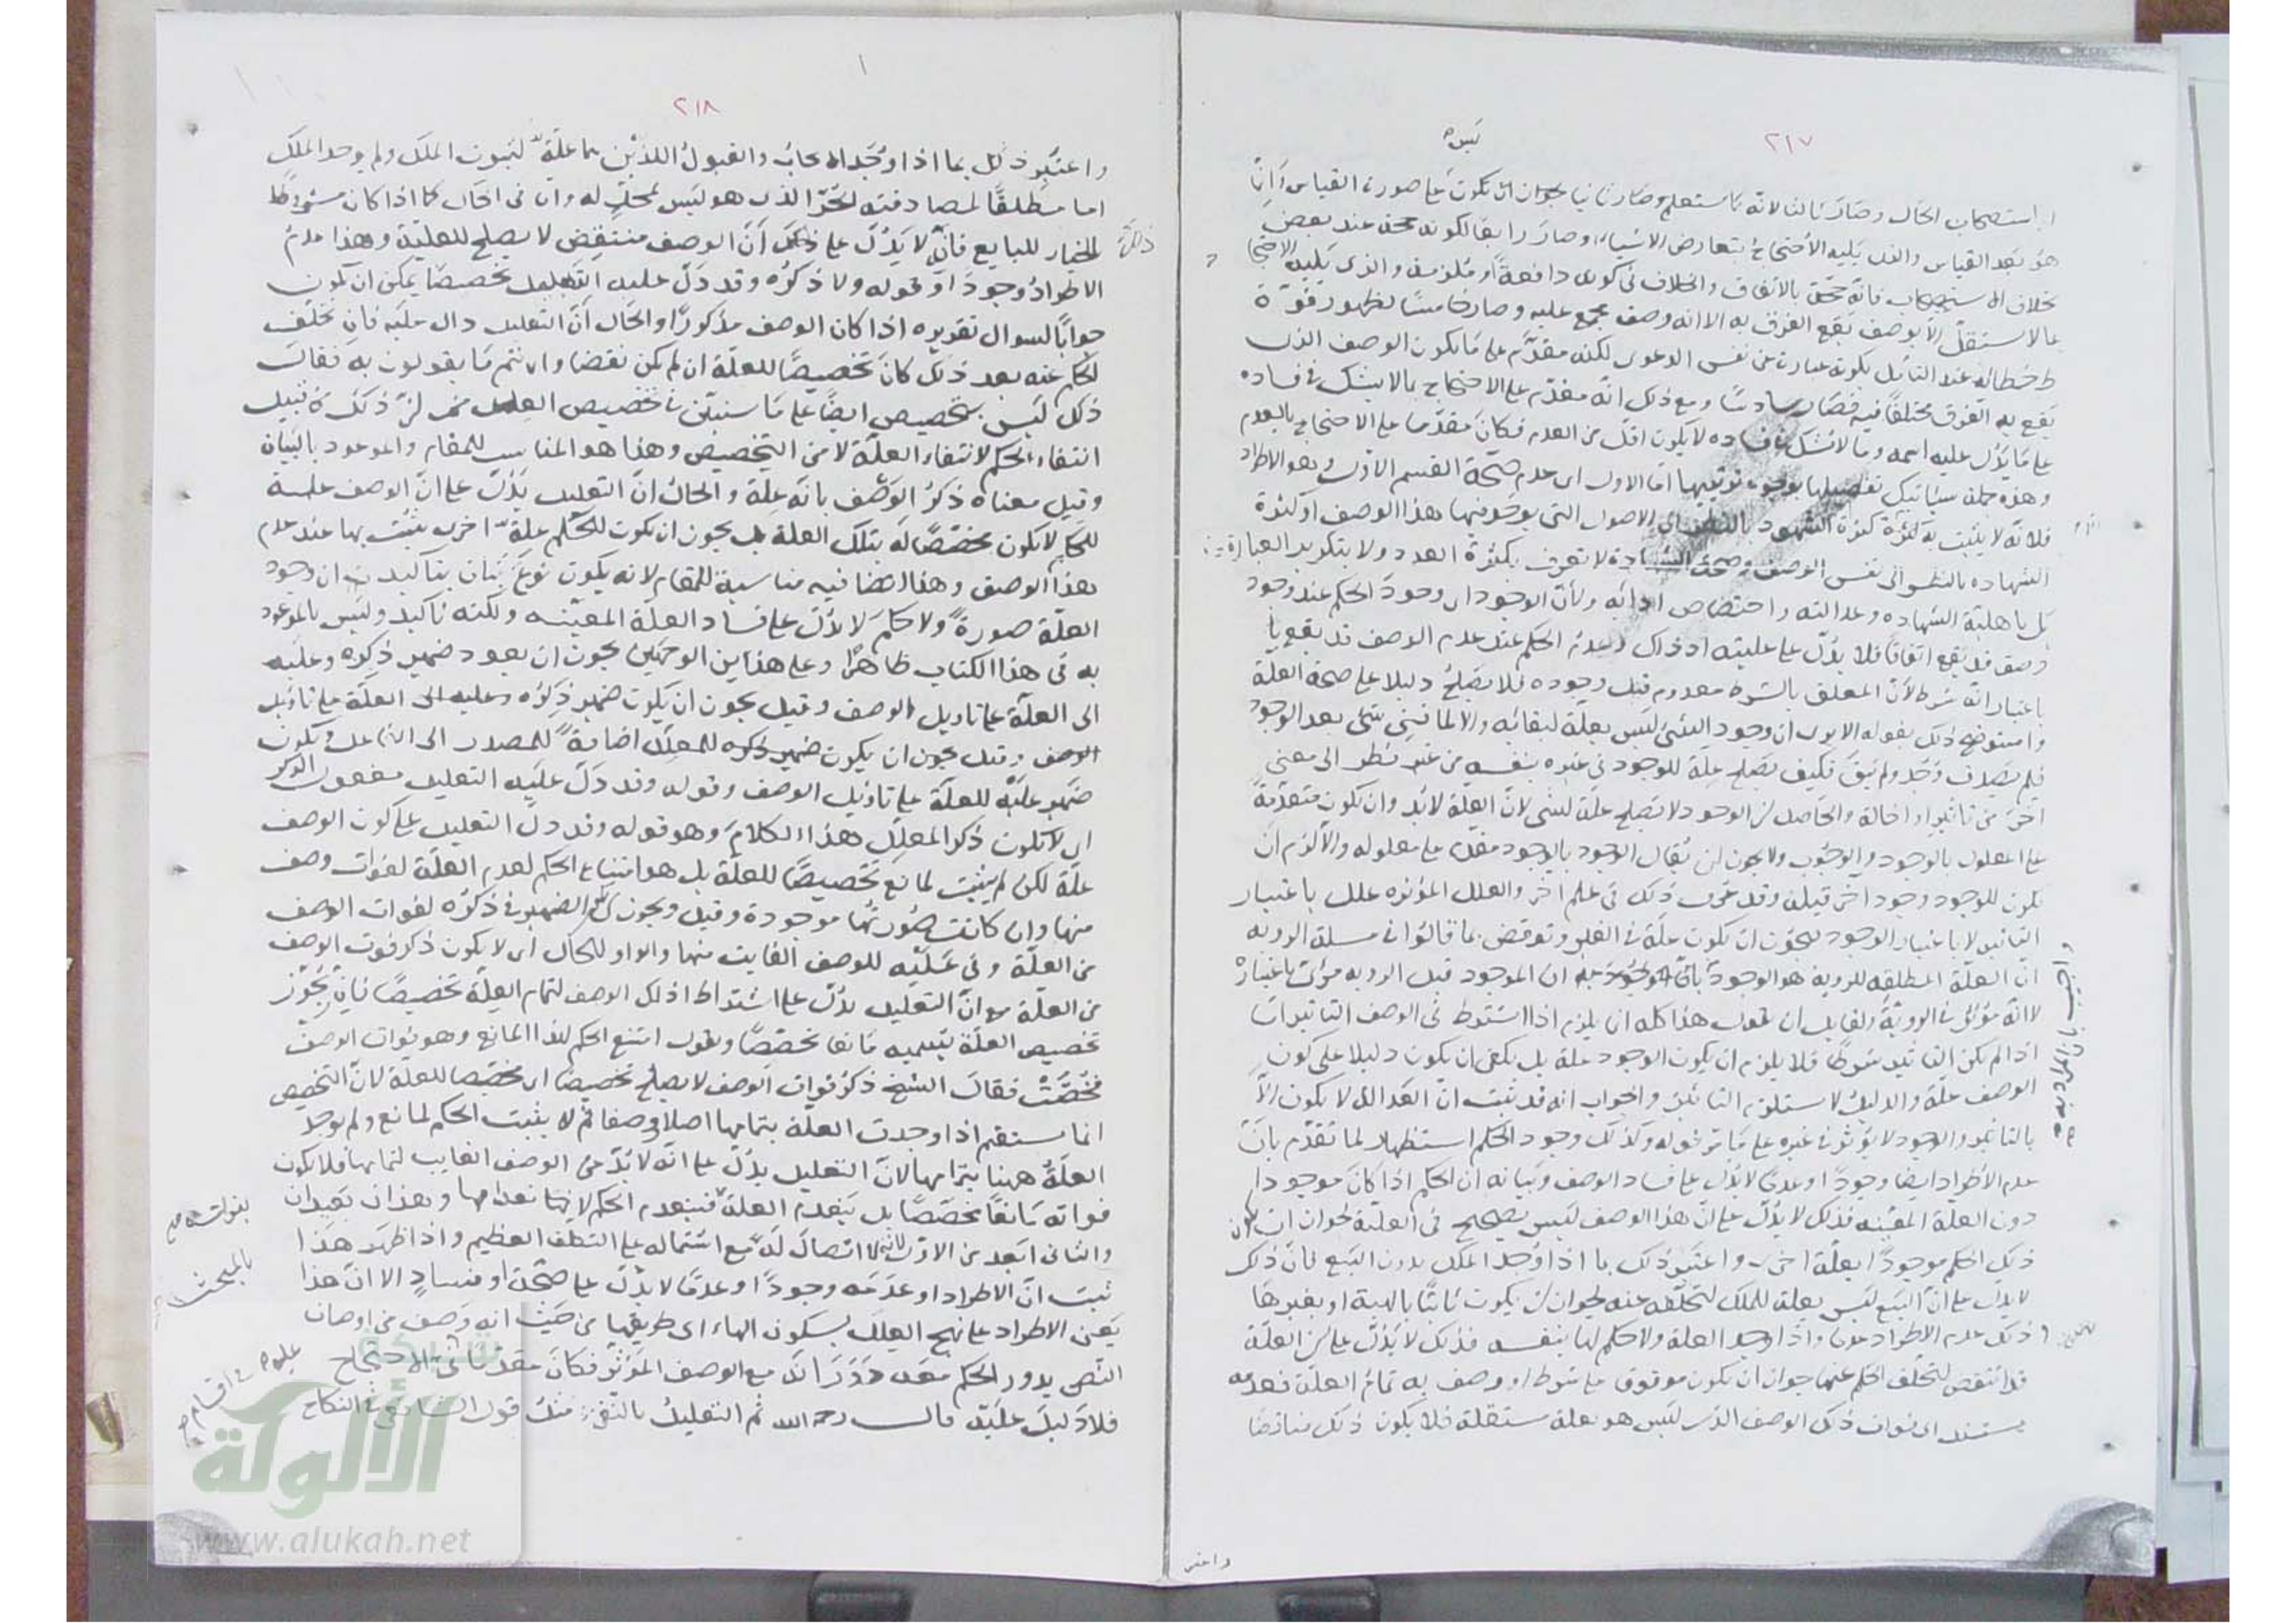 ٢١٧
ليس
اى استصحاب الحال وصار ثالثا لانه
هو بعد القياس والذى يليه الاحتجاج بتعارض الاشياء وصار رابعا لكونه حجة عند بعض
بخلاف الاستصحاب فانه حجة بالاتفاق والخلاف فى كونه دافعة او ملزمة والذى يليه الاحتجاج
بما لا يستقل الا بوصف يقع الفرق به الا انه وصف مجمع عليه وصار خامسا لظهور قوة
عند التأمل بكونه عبارة عن نفس الدعوى لكنه مقدم على ما يكون الوصف الذى
يقع به الفرق مختلفا فيه فصار سادسا ومع ذلك انه مقدم على الاحتجاج بما لا يشك فى فساده
على ما يدل عليه اسمه وما لا يشك فى فساده لا يكون اقل من العدم فكان مقدما على الاحتجاج بالعدم
وهذه جملة سيأتيك تفصيلها بوجوه ترتيبها اما الاول اى عدم صحة القسم الاول وهو الاطراد
فلانه لا يثبت به كثرة الشهود بالنظر الى الاصول التى يوجد فيها هذا الوصف او كثرة
الشهادة بالنظر الى نفس الوصف وصحة الشهادة لا تعرف بكثرة العدد ولا بتكرير العبارة
بل باهلية الشهادة وعدالته واختصاص ادائه ولان الوجود اى وجود الحكم عند وجود
وصف قد يقع اتفاقا فلا يدل على عليته اذ ذاك وعدم الحكم عند عدم الوصف قد يقع
باعتبار انه شرط لان المعلق بالشرط معدوم قبل وجوده فلا يصلح دليلا على صحة العلة
واستوضح ذلك بقوله الا يرى ان وجود الشئ ليس بعلة لبقائه والا لما فنى شئ بعد الوجود
فلم وجد ولم يبق فكيف يصلح علة للوجود فى غيره بنفسه من غير نظر الى معنى
اخر من تأثير او اخالة والحاصل ان الوجود لا يصلح علة لشئ لان العلة لا بد وان تكون متقدمة
على المعلول بالوجود والوجوب ولا يجوز ان يقال الوجود بالوجود مقدم على معلوله والا لزم ان
يكون للوجود وجود اخر قبله وقد عرف ذلك فى علم اخر والعلل المؤثرة علل باعتبار
التأثير لا باعتبار الوجود فيجوز ان تكون علة فى الغير ونوقض بما قالوا فى مسئلة الرؤية
ان العلة المطلقة للرؤية هو الوجود ان الموجود قبل الرؤية مرئى باعتبار
لا انه مؤثر فى الرؤية ولقايل ان يقول هذا كله انما يلزم اذا اشترط فى الوصف التأثير اما
اذا لم يكن التأثير شرطا فلا يلزم ان يكون الوجود علة بل يكفى ان يكون دليلا على كون
الوصف علة والدليل لا يستلزم التأثير والجواب انه قد ثبت ان العدالة لا يكون الا
بالتأثير والوجود لا يؤثر فى غيره على ما مر قوله وكذلك وجود الحكم استظهار لما تقدم بان
عدم الاطراد ايضا وجودا وعدما لا يدل على فساد الوصف وبيانه ان الحكم اذا كان موجودا
دون العلة المعينة فذلك لا يدل على ان هذا الوصف ليس بصحيح فى العلية لجواز ان يكون
ذلك الحكم موجودا بعلة اخرى واعتبر ذلك بما اذا وجد الملك بدون البيع فان ذلك
لا يدل على ان البيع ليس بعلة للملك لتخلفه عنه لجواز ان يكون ثابتا بالهبة او بغيرها
وذلك عدم الاطراد عدما واذا وجد العلة ولا حكم لها بنفسه فذلك لا يدل على ان العلة
قد انتقض لتخلف الحكم عنها لجواز ان تكون موقوفة على شرط او وصف به تمام العلة فعدمه
مستند الى فوات ذلك الوصف الذى ليس هو بعلة مستقلة فلا يكون ذلك مناقضا
واعتبر
٢١٨
واعتبر ذلك بما اذا وجد الايجاب والقبول اللذين هما علة لثبوت الملك ولم يوجد الملك
اما مطلقا لمصادفته الحر الذى هو ليس بمحل له واما فى الحال كما اذا كان مشروطا
الخيار للبايع فانه لا يدل على ذلك ان الوصف منتقض لا يصلح للعلية وهذا عدم
الاطراد وجودا وقوله ولا ذكره وقد دل عليه التعليل تخصيصا يمكن ان يكون
جوابا لسوال تقريره اذا كان الوصف مذكورا والحال ان التعليل دال عليه فان تخلف
الحكم عنه بعد ذلك كان تخصيصا للعلة ان لم يكن نقضا وانتم ما تقولون به فقال
ذلك ليس بتخصيص ايضا على ما سنبين فى تخصيص العلل ان ذلك من قبيل
انتفاء الحكم لانتفاء العلة لا من التخصيص وهذا هو المناسب للمقام والموعود بالبيان
وقيل معناه ذكر الوصف بانه علة والحال ان التعليل يدل على ان الوصف علة
للحكم لا يكون مخصصا له بتلك العلة بل يجوز ان يكون للحكم علة اخرى يثبت بها عند عدم
هذا الوصف وهذا ايضا فيه مناسبة للمقام لانه يكون نوع بيان بتأكيد ان وجود
العلة صورة ولا حكم لا يدل على فساد العلة المعينة ولكنه تأكيد وليس بالموعود
به فى هذا الكتاب ظاهرا وعلى هذا من الوجهين يجوز ان يعود ضمير ذكره وعليه
الى العلة على تاويل الوصف وقيل يجوز ان يكون ضمير ذكره وعليه الى العلة على تأويل
الوصف وقيل يجوز ان يكون ضمير ذكره للمعلل اضافة للمصدر الى الفاعل ويكون
ضمير عليه للعلة على تأويل الوصف وقوله وقد دل عليه التعليل مفعول الذكر
اى لا يكون ذكر المعلل هذا الكلام وهو قوله وقد دل التعليل على كون الوصف
علة لكن لم يثبت لمانع تخصيصا للعلة بل هو امتناع الحكم لعدم العلة لفوات وصف
منها وان كانت صورتها موجودة وقيل ويجوز ان الضمير فى ذكره لفوات الوصف
من العلة وفى عليه للوصف الفايت منها والواو للحال اى لا يكون ذكر فوت الوصف
من العلة مع ان التعليل يدل على اشتراط ذلك الوصف لتمام العلة تخصيصا فان مجوز
تخصيص العلة يسميه مانعا مخصصا ويقول امتنع الحكم لهذا المانع وهو فوات الوصف
فخصت فقال الشيخ ذكر فوات الوصف لا يصلح تخصيصا اى مخصصا للعلة لان التخصيص
انما يستقيم اذا وجدت العلة بتمامها اصلا ووصفا ثم لا يثبت الحكم لمانع ولم يوجد
العلة ههنا بتمامها لان التعليل يدل على انه لا بد من الوصف الفايت لتمامها فلا يكون
فواته مانعا مخصصا بل ينعدم العلة فينعدم الحكم لانعدامها وهذان بعيدان
والثانى ابعد من الاول لانه لا اتصال له مع اشتماله على التكلف العظيم واذا ظهر هذا
ثبت ان الاطراد او عدمه وجودا وعدما لا يدل على صحة او فساد الا ان هذا
يعنى الاطراد على نهج العلل بسكون الهاء اى طريقها من حيث انه وصف من اوصاف
النص يدور الحكم معه دورانه مع الوصف المؤثر فكان مقدما على الاحتجاج
فلا دليل عليه قال رحمه الله ثم التعليل بالنفى مثل قول الشافعى فى النكاح
بالمبحث
شبكة
الألوكة
www.alukah.net